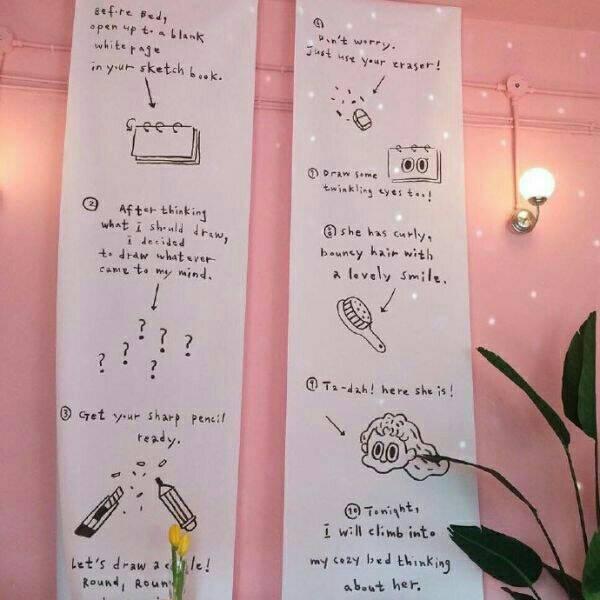 Before Bed,
open up to a blank
white page
in your sketch book.
②
After thinking
what I should draw,
I decided
to draw whatever
came to my mind.
? ? ? ? ? ?
③ Get your sharp pencil
ready.
Let's draw a
Round,
Don't worry.
Just use your eraser!
⑦ Draw some
twinkling eyes too!
⑧ she has curly,
bouncy hair with
a lovely smile.
⑨ Ta-dah! here she is!
⑩ Tonight,
I will climb into
my cozy bed thinking
about her.